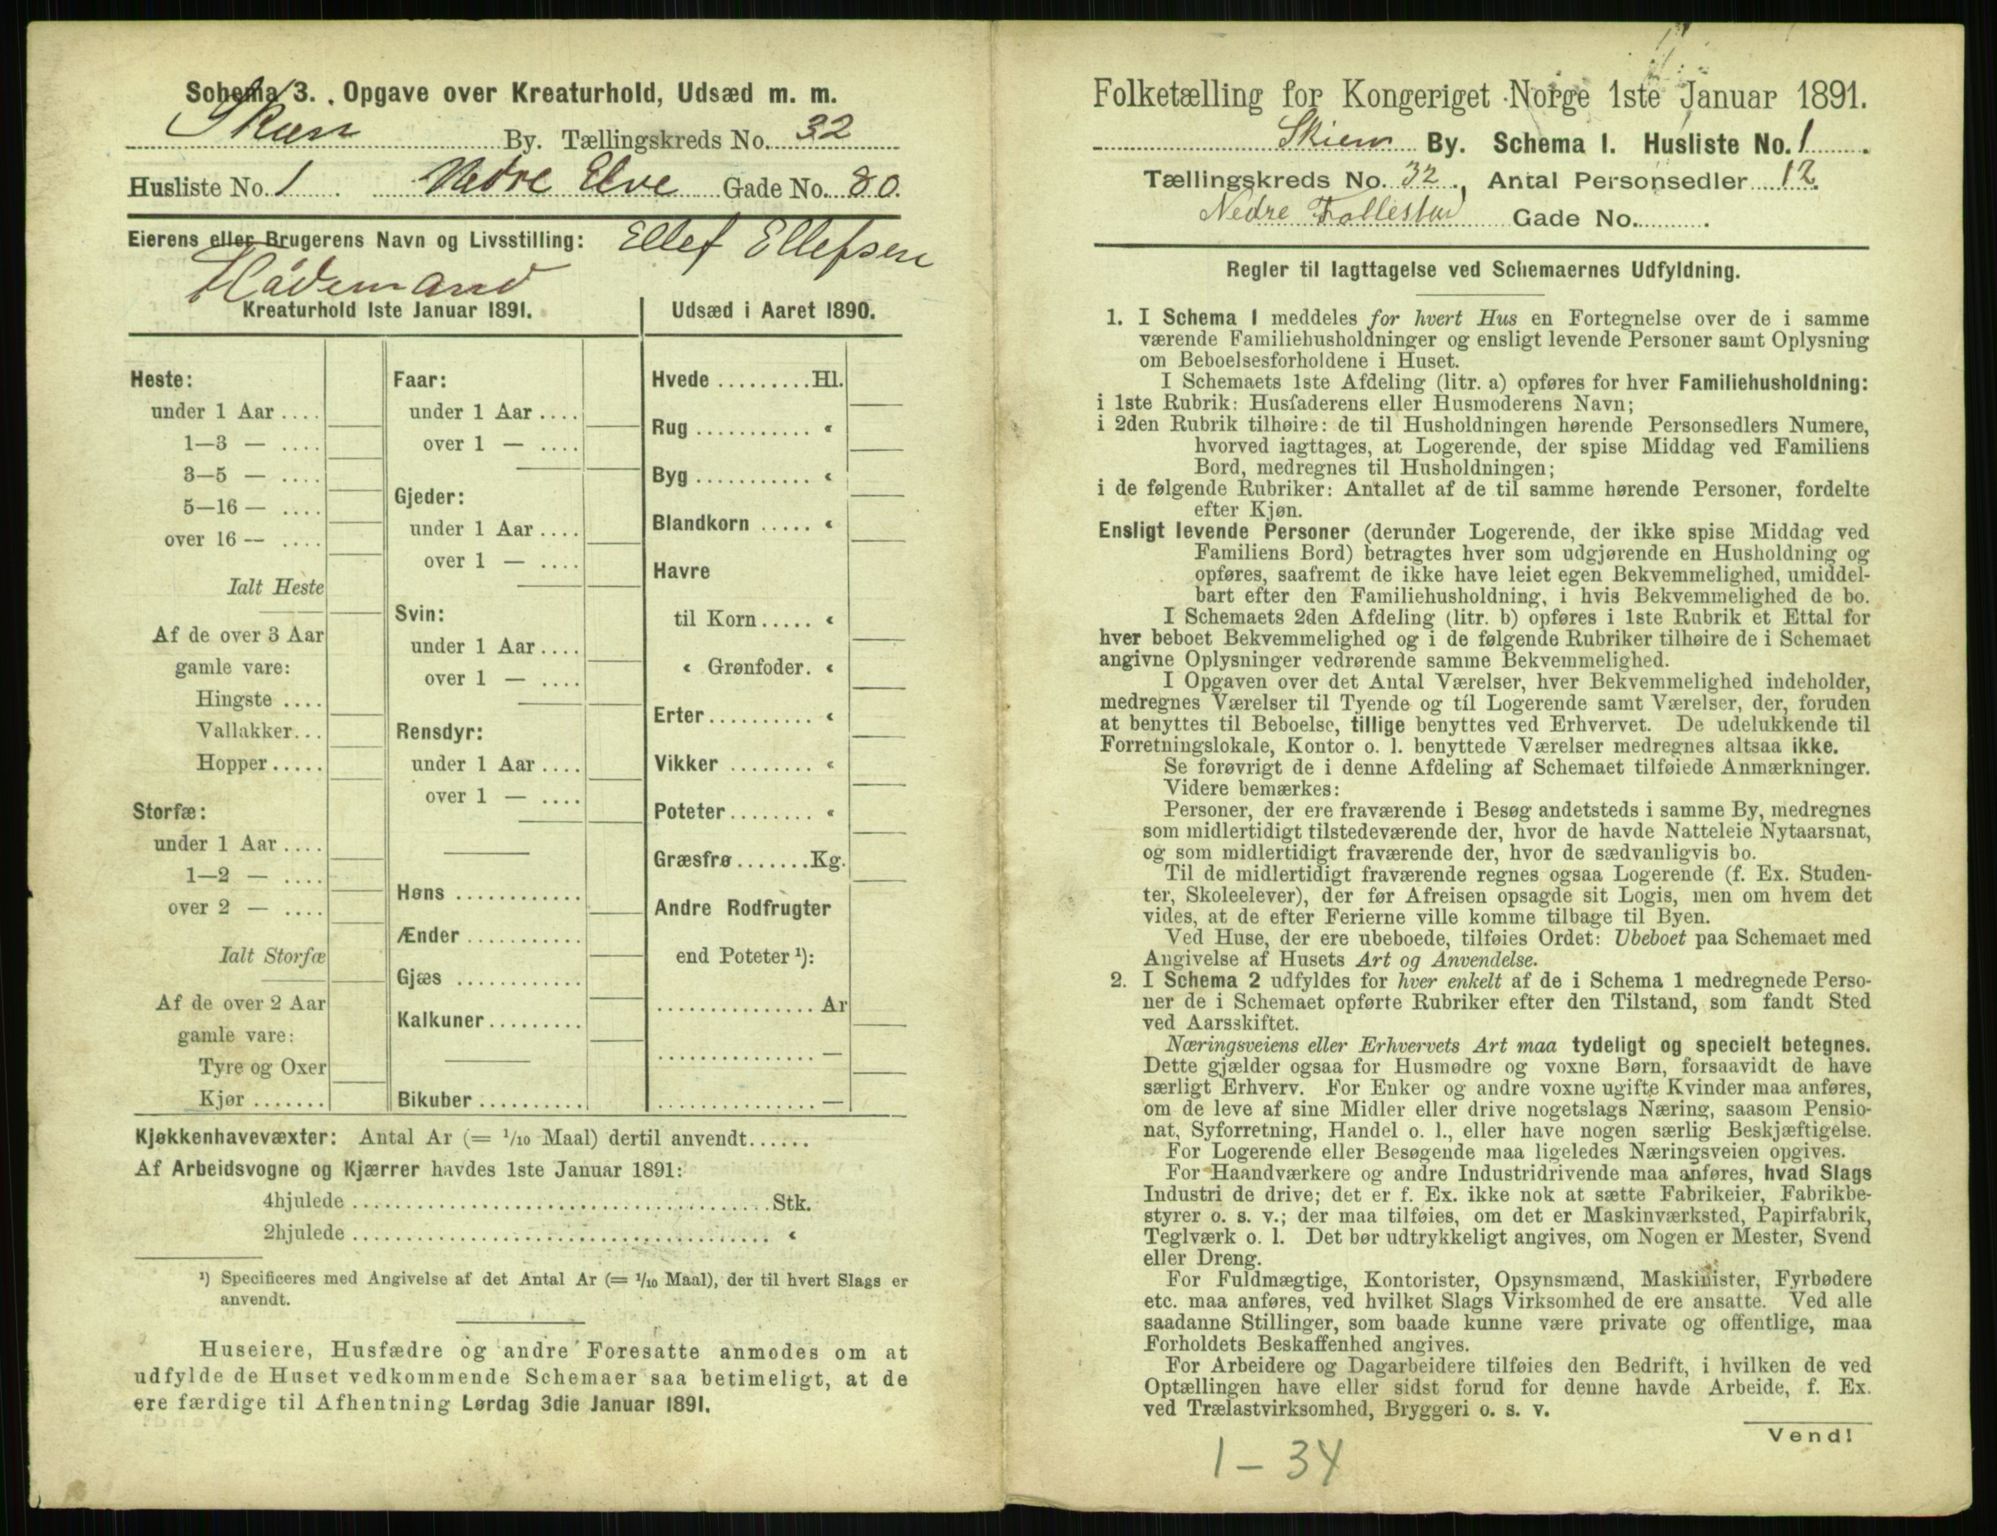 Schema 3. Opgave over Kreaturhold, Udsæd m. m.
Skien By. Tællingskreds No. 32
Husliste No. 1 Nedre Elve Gade No. 80.
Eierens eller Brugerens Navn og Livsstilling: Ellef Ellefsen
Flødemand
Kreaturhold 1ste Januar 1891.
Heste:
under 1 Aar ....
1—3 — ....
3—5 — ....
5—16 — ....
over 16 — ....
Ialt Heste
Af de over 3 Aar
gamle vare:
Hingste ....
Vallakker...
Hopper.....
Storfæ:
under 1 Aar ....
1—2 — ....
over 2 — ....
Ialt Storfæ
Af de over 2 Aar
gamle vare:
Tyre og Oxer
Kjør .......
Faar:
under 1 Aar ....
over 1 — ....
Gjeder:
under 1 Aar ....
over 1 — ....
Svin:
under 1 Aar ....
over 1 — ....
Rensdyr:
under 1 Aar ....
over 1 — ....
Høns ............
Ænder ...........
Gjæs ............
Kalkuner.........
Bikuber ..........
Udsæd i Aaret 1890.
Hvede .........Hl.
Rug ........... «
Byg ........... «
Blandkorn ..... «
Havre
til Korn ..... «
« Grønfoder. «
Erter.......... «
Vikker ........ «
Poteter........ «
Græsfrø .......Kg.
Andre Rodfrugter
end Poteter ¹):
............... Ar
............... —
............... —
Kjøkkenhavevæxter: Antal Ar (= 1/10 Maal) dertil anvendt......
Af Arbeidsvogne og Kjærrer havdes 1ste Januar 1891:
4hjulede ........................................Stk.
2hjulede ........................................ «
¹) Specificeres med Angivelse af det Antal Ar (= 1/10 Maal), der til hvert Slags er
anvendt.
Huseiere, Husfædre og andre Foresatte anmodes om at
udfylde de Huset vedkommende Schemaer saa betimeligt, at de
ere færdige til Afhentning Lørdag 3die Januar 1891.
Folketælling for Kongeriget Norge 1ste Januar 1891.
Skien By. Schema I. Husliste No. 1
Tællingskreds No. 32, Antal Personsedler 12.
Nedre Follestad Gade No. .
Regler til Iagttagelse ved Schemaernes Udfyldning.
1. I Schema I meddeles for hvert Hus en Fortegnelse over de i samme
værende Familiehusholdninger og ensligt levende Personer samt Oplysning
om Beboelsesforholdene i Huset.
I Schemaets 1ste Afdeling (litr. a) opføres for hver Familiehusholdning:
i 1ste Rubrik: Husfaderens eller Husmoderens Navn;
i 2den Rubrik tilhøire: de til Husholdningen hørende Personsedlers Numere,
hvorved iagttages, at Logerende, der spise Middag ved Familiens
Bord, medregnes til Husholdningen;
i de følgende Rubriker: Antallet af de til samme hørende Personer, fordelte
efter Kjøn.
Ensligt levende Personer (derunder Logerende, der ikke spise Middag ved
Familiens Bord) betragtes hver som udgjørende en Husholdning og
opføres, saafremt de ikke have leiet egen Bekvemmelighed, umiddel-
bart efter den Familiehusholdning, i hvis Bekvemmelighed de bo.
I Schemaets 2den Afdeling (litr. b) opføres i 1ste Rubrik et Ettal for
hver beboet Bekvemmelighed og i de følgende Rubriker tilhøire de i Schemaet
angivne Oplysninger vedrørende samme Bekvemmelighed.
I Opgaven over det Antal Værelser, hver Bekvemmelighed indeholder,
medregnes Værelser til Tyende og til Logerende samt Værelser, der, foruden
at benyttes til Beboelse, tillige benyttes ved Erhvervet. De udelukkende til
Forretningslokale, Kontor o. l. benyttede Værelser medregnes altsaa ikke.
Se forøvrigt de i denne Afdeling af Schemaet tilføiede Anmærkninger.
Videre bemærkes:
Personer, der ere fraværende i Besøg andetsteds i samme By, medregnes
som midlertidigt tilstedeværende der, hvor de havde Natteleie Nytaarsnat,
og som midlertidigt fraværende der, hvor de sædvanligvis bo.
Til de midlertidigt fraværende regnes ogsaa Logerende (f. Ex. Studen-
ter, Skoleelever), der før Afreisen opsagde sit Logis, men om hvem det
vides, at de efter Ferierne ville komme tilbage til Byen.
Ved Huse, der ere ubeboede, tilføies Ordet: Ubeboet paa Schemaet med
Angivelse af Husets Art og Anvendelse.
2. I Schema 2 udfyldes for hver enkelt af de i Schema 1 medregnede Perso-
ner de i Schemaet opførte Rubriker efter den Tilstand, som fandt Sted
ved Aarsskiftet.
Næringsveiens eller Erhvervets Art maa tydeligt og specielt betegnes.
Dette gjælder ogsaa for Husmødre og voxne Børn, forsaavidt de have
særligt Erhverv. For Enker og andre voxne ugifte Kvinder maa anføres,
om de leve af sine Midler eller drive nogetslags Næring, saasom Pensio-
nat, Syforretning, Handel o. l., eller have nogen særlig Beskjæftigelse.
For Logerende eller Besøgende maa ligeledes Næringsveien opgives.
For Haandværkere og andre Industridrivende maa anføres, hvad Slags
Industri de drive; det er f. Ex. ikke nok at sætte Fabrikeier, Fabrikbe-
styrer o. s. v.; der maa tilføies, om det er Maskinværksted, Papirfabrik,
Teglværk o. l. Det bør udtrykkeligt angives, om Nogen er Mester, Svend
eller Dreng.
For Fuldmægtige, Kontorister, Opsynsmænd, Maskinister, Fyrbødere
etc. maa anføres, ved hvilket Slags Virksomhed de ere ansatte. Ved alle
saadanne Stillinger, som baade kunne være private og offentlige, maa
Forholdets Beskaffenhed angives.
For Arbeidere og Dagarbeidere tilføies den Bedrift, i hvilken de ved
Optællingen have eller sidst forud for denne havde Arbeide, f. Ex.
ved Trælastvirksomhed, Bryggeri o. s. v.
Vend!
1 – 34